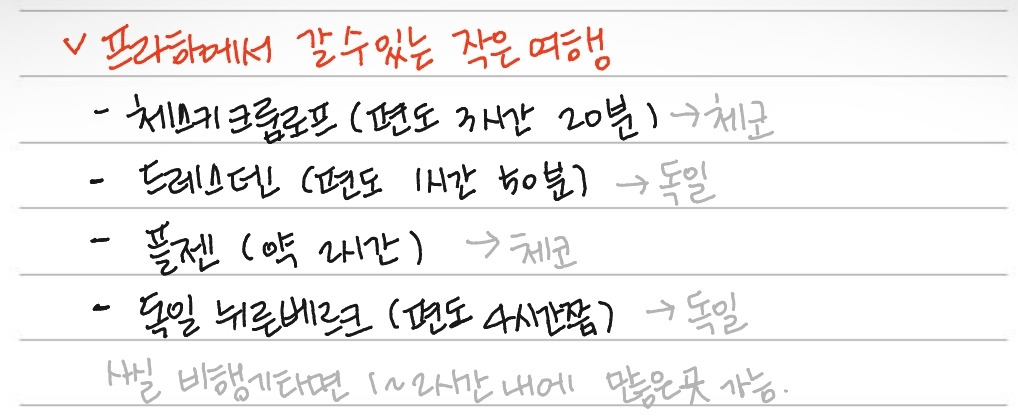 ✓ 프라하에서 갈 수 있는 작은 여행
- 체스키크룸로프 (편도 3시간 20분) → 체코
- 드레스덴 (편도 1시간 50분) → 독일
- 플젠 (약 2시간) → 체코
- 독일 뉘른베르크 (편도 4시간쯤) → 독일
사실 비행기타면 1~2시간 내에 많은곳 가능.